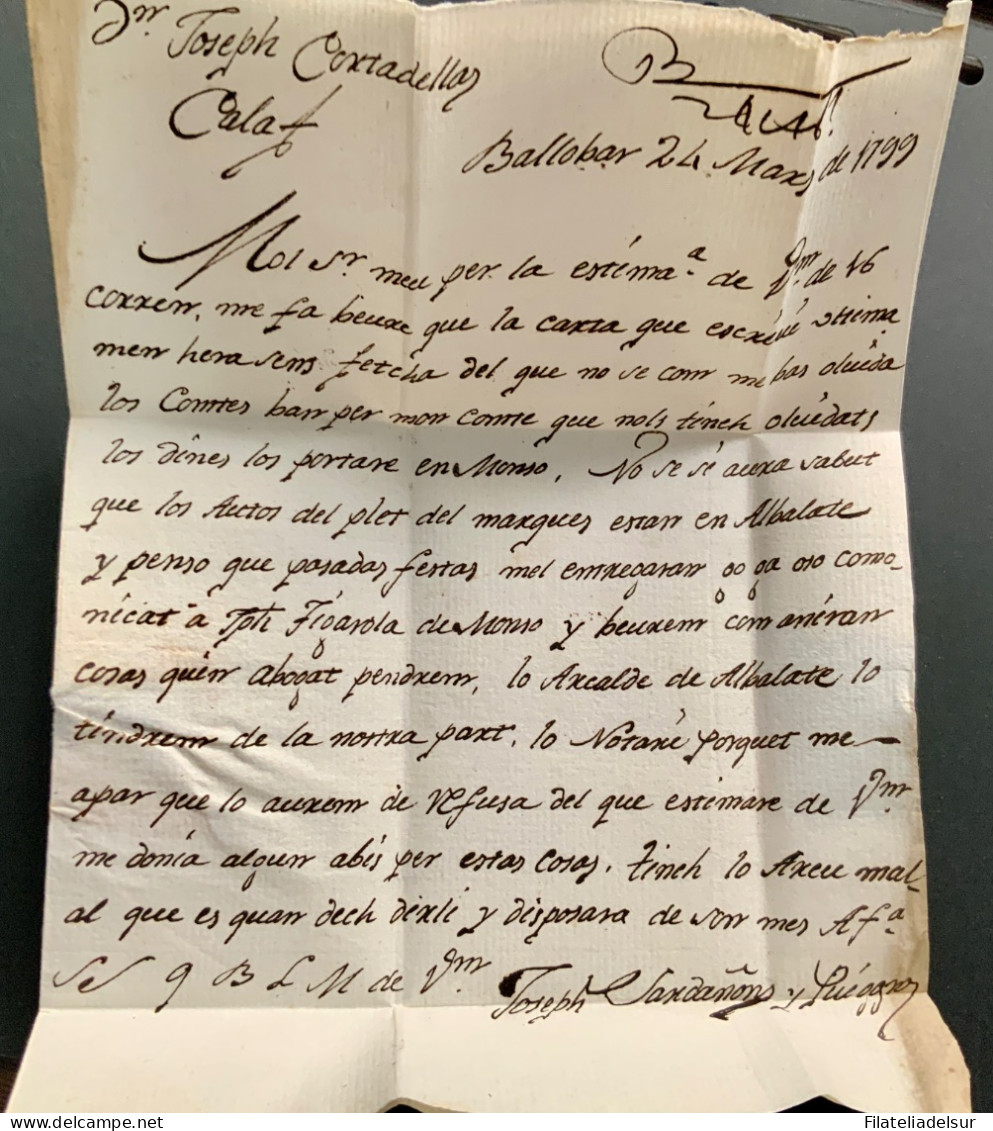 Dn. Joseph Cortadellas
Calaf
Ballobar 24 Mars de 1799
Mol Sr. meu per la estima.a de Vm. de 16
corren, me fa beure que la carta que escrigué ultima
men hera sens fetcha del que no se com me bas oluida
los Comtes ban per mon comte que nols tinch oluidats
los dines los portare en Monso, No se si aura sabut
que los Autos del plet del marques estan en Albalate
y penso que pasadas festas mel entregaran go ga o so como-
nicat a Jph Figarola de Monso y beurem com aniran
cosas quin abogat pendrem, lo Arcalde de Albalate lo
tindrem de la nostra part, lo Notari Porquet me
apar que lo aurem de refusa del que estimare de Vm.
me donia algun abis per estas cosas, tinch lo Areu mal-
al que es quan dech dirli y disposara de son mes Af.a
S S q B L M de Vm.
Joseph Sardañons y Puiggros
Filateliadelsur